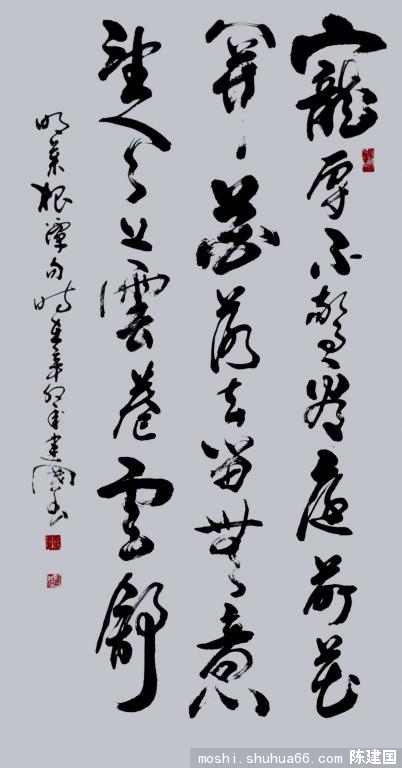 寵辱不驚看庭前花
開花落去留無意
望天上雲卷雲舒
明菜根譚句時在辛卯年建國書
moshi.shuhua66.com 陈建国